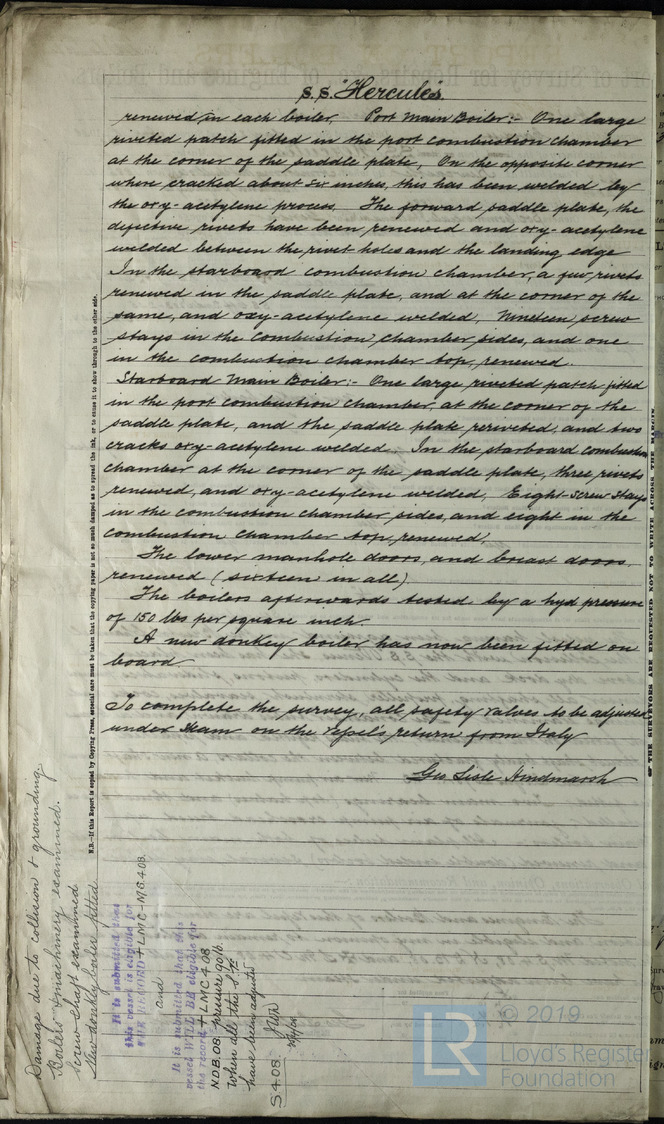 S.S. "Hercules".
renewed, in each boiler. Port Main Boiler:- One large
riveted patch fitted in the port combustion chamber
at the corner of the saddle plate, On the opposite corner
where cracked about six inches, this has been welded by
the oxy-acetylene process. The forward saddle plate, the
defective rivets have been renewed and oxy-acetylene
welded between the rivet holes and the landing edge
In the starboard combustion chamber, a few rivets
renewed in the saddle plate, and at the corner of the
same, and oxy-acetylene welded, Nineteen screw
stays in the combustion chamber sides, and one
in the combustion chamber top, renewed.
Starboard Main Boiler:- One large riveted patch fitted
in the port combustion chamber, at the corner of the
saddle plate, and the saddle plate reriveted, and two
cracks oxy-acetylene welded. In the starboard combustion
chamber at the corner of the saddle plate, three rivets
renewed, and oxy-acetylene welded, Eight Screw Stays
in the combustion chamber sides, and eight in the
combustion chamber top, renewed.
The lower manhole doors, and breast doors,
renewed (sixteen in all)
The boilers afterwards tested by a hyd pressure
of 150 lbs per square inch.
A new donkey boiler has now been fitted on
board
To complete the survey, all safety valves to be adjusted
under steam on the vessel's return from Italy
Geo Lisle Hindmarsh
N.B.—If this Report is copied by Copying Press, especial care must be taken that the copying paper is not so much damped as to spread the ink, or to cause it to show through to the other side.
Damage due to collision & grounding.
Boilers & machinery examined.
Screw shaft examined
New donkey boiler fitted
It is submitted that
this vessel is eligible for
THE RECORD + LMC-MS 4.08.
and
It is submitted that this
vessel WILL BE eligible for
the record + LMC 4.08
N.D.B. 08. pressure 90 lb.
when all the S.Vs
have been adjusted
S 4.08.
OF THE SURVEYORS ARE REQUESTED NOT TO WRITE ACROSS THE MARGIN
LR
© 2019
Lloyd's Register
Foundation